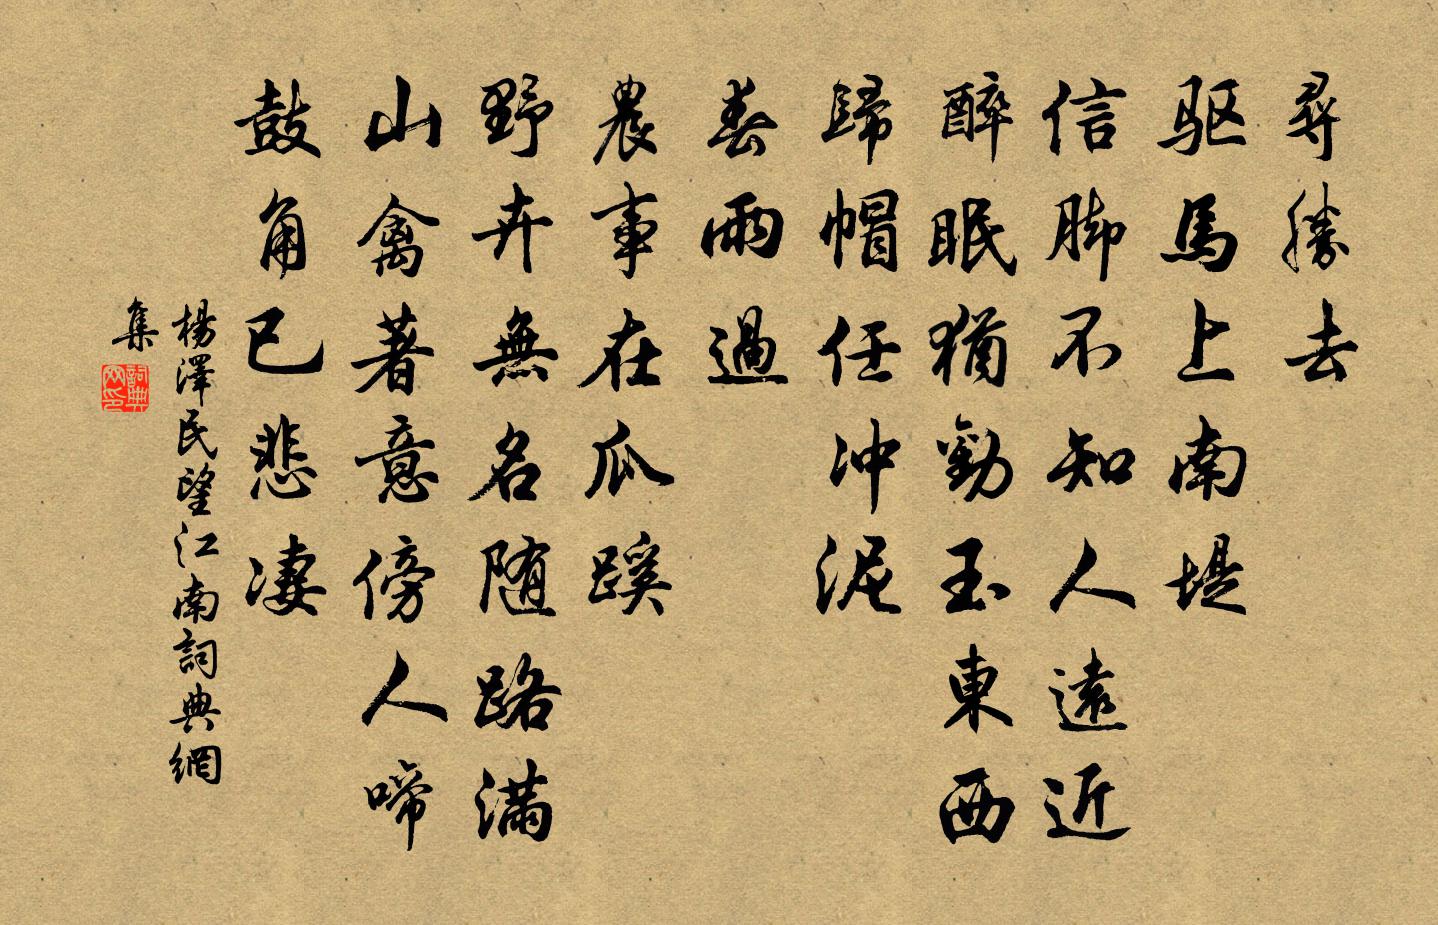 尋勝去
驱馬上南堤
信脚不知人遠近
醉眠猶勸玉東西
歸帽任冲泥
春雨過
農事在瓜蹊
野卉無名随路满
山禽著意傍人啼
鼓角已悲淒
楊澤民望江南詞典網
集
詞典
网印